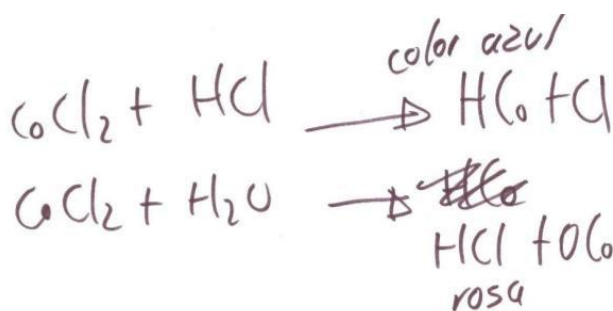 color azul
CoCl₂ + HCl → HCo + Cl
CoCl₂ + H₂O →
HCl + OCo
rosa